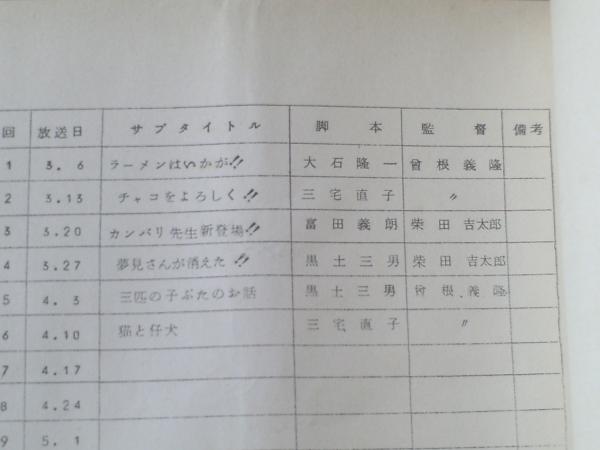 回 放送日 サブタイトル 脚本 監督 備考
1 3. 6 ラーメンはいかが!! 大石隆一 曾根義隆
2 3.13 チャコをよろしく!! 三宅直子 〃
3 3.20 カンバリ先生新登場!! 富田義朗 柴田吉太郎
4 3.27 夢見さんが消えた!! 黒土三男 柴田吉太郎
5 4. 3 三匹の子ぶたのお話 黒土三男 曾根義隆
6 4.10 猫と仔犬 三宅直子 〃
7 4.17
8 4.24
9 5. 1